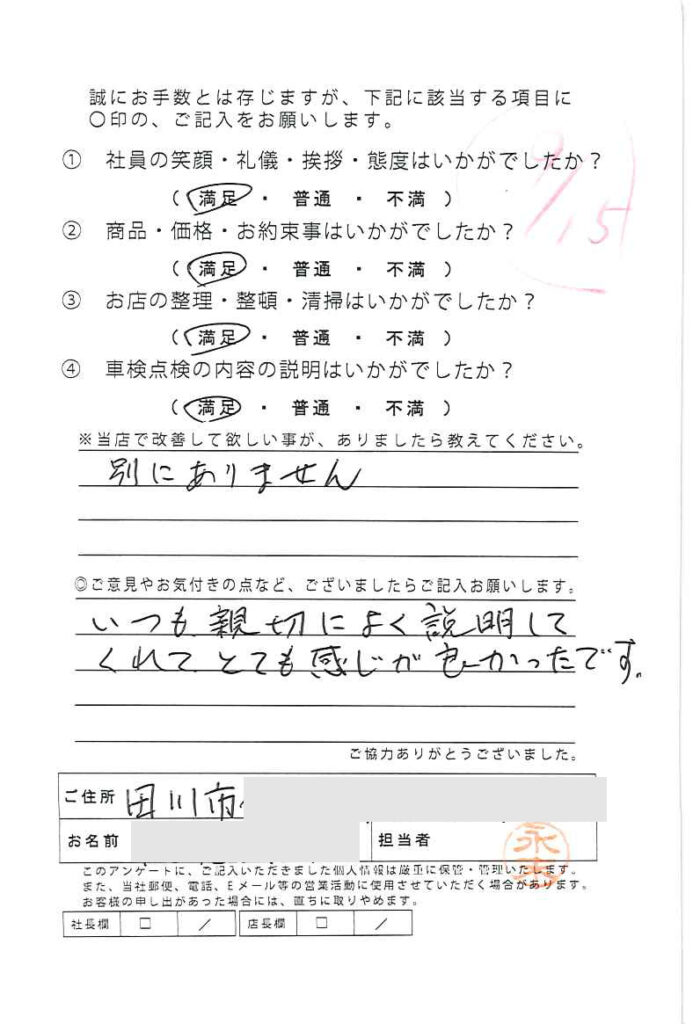 誠にお手数とは存じますが、下記に該当する項目に
〇印の、ご記入をお願いします。
① 社員の笑顔・礼儀・挨拶・態度はいかがでしたか？
（ 満足 ・ 普通 ・ 不満 ）
9/15
② 商品・価格・お約束事はいかがでしたか？
（ 満足 ・ 普通 ・ 不満 ）
③ お店の整理・整頓・清掃はいかがでしたか？
（ 満足 ・ 普通 ・ 不満 ）
④ 車検点検の内容の説明はいかがでしたか？
（ 満足 ・ 普通 ・ 不満 ）
※当店で改善して欲しい事が、ありましたら教えてください。
別にありません
◎ご意見やお気付きの点など、ございましたらご記入お願いします。
いつも親切によく説明して
くれてとても感じが良かったです。
ご協力ありがとうございました。
ご住所 田川市
お名前 担当者
このアンケートに、ご記入いただきました個人情報は厳重に保管・管理いたします。
また、当社郵便、電話、Eメール等の営業活動に使用させていただく場合があります。
お客様の申し出があった場合には、直ちに取りやめます。
社長欄 □ ／ 店長欄 □ ／